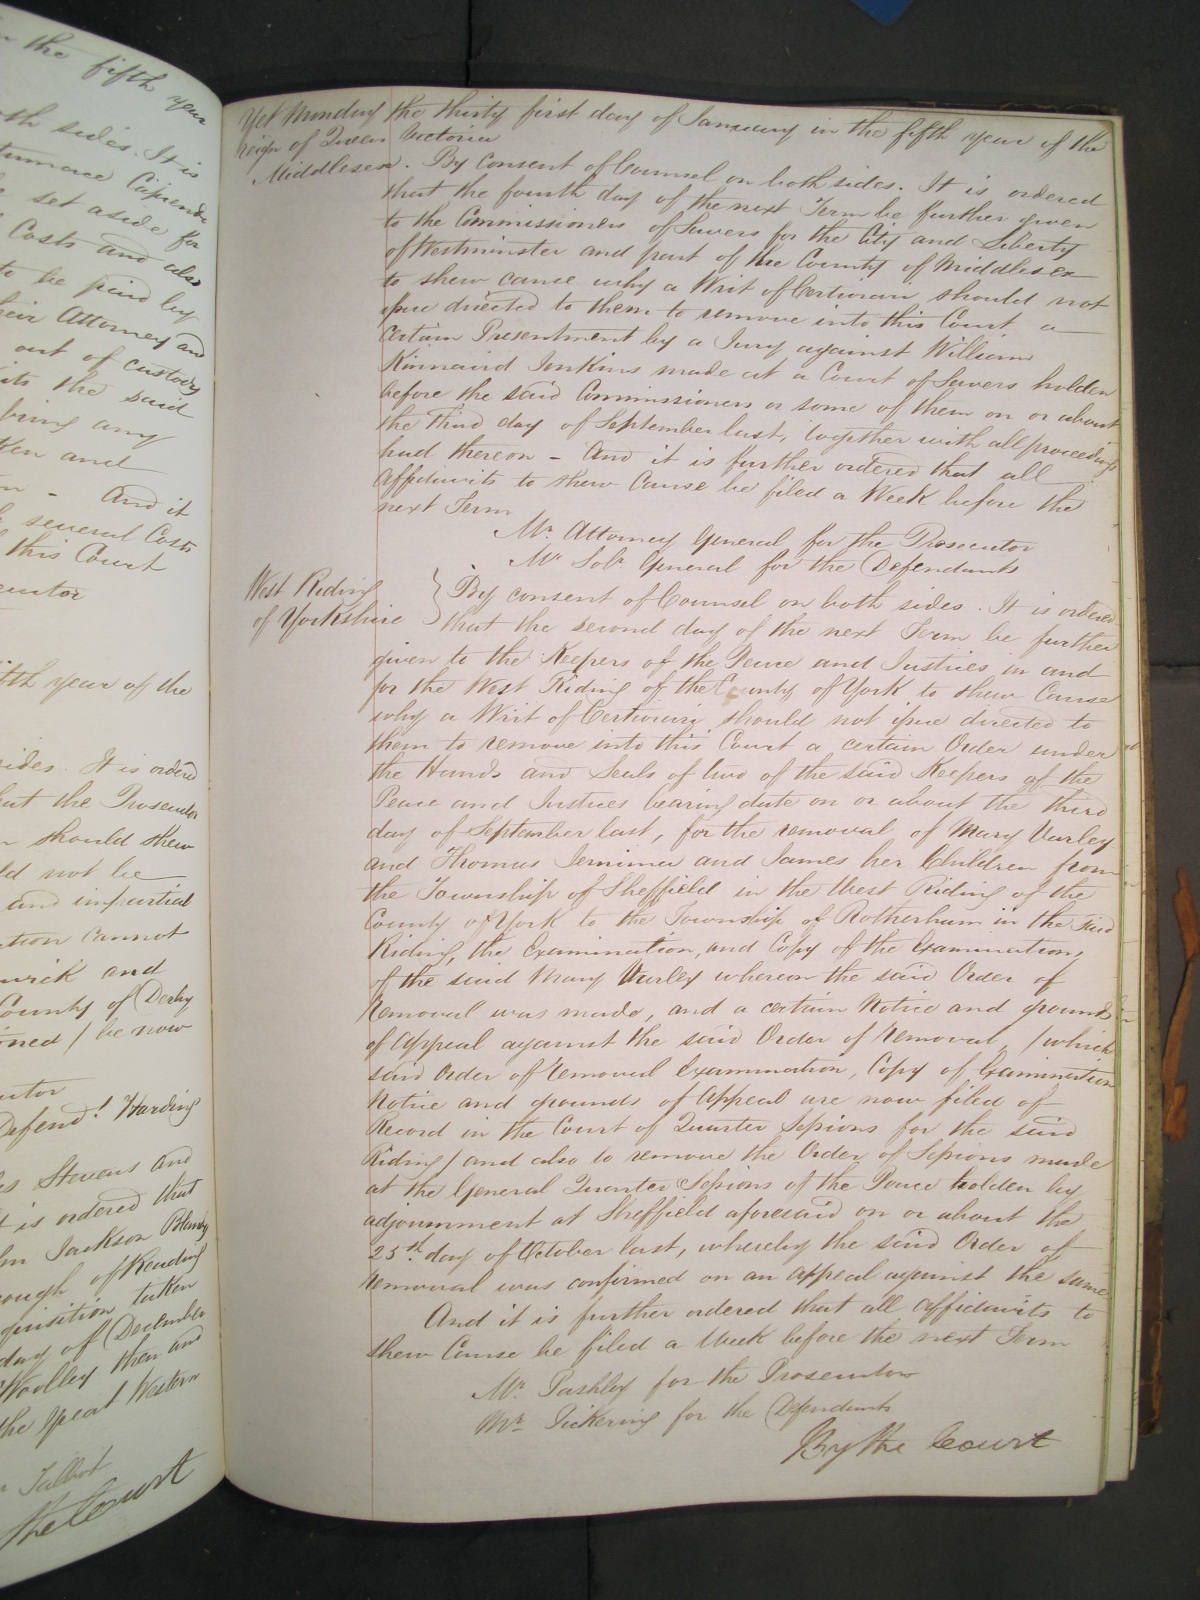 in the fifth year
both sides. It is
set aside for
Costs and also
to be paid by
their Attorney and
out of custody
the said
bring any
and
- And it
several Costs
this Court
fifth year of the
sides. It is ordered
that the Prosecutor
should shew
not be
and impartial
cannot
and
County of Derby
/ be now
Defend.t Harding
Stevens and
it is ordered that
Jackson Blandy
of Reading
inquisition taken
day of December
Woolley then and
the Great Western
Talbot
the Court
Yet Monday the thirty first day of January in the fifth year of the
reign of Queen Victoria
Middlesex. By Consent of Counsel on both sides. It is ordered
that the fourth day of the next Term be further given
to the Commissioners of Sewers for the City and Liberty
of Westminster and part of the County of Middlesex
to shew cause why a Writ of Certiorari should not
issue directed to them to remove into this Court a
certain Presentment by a Jury against William
Kinnaird Jenkins made at a Court of Sewers holden
before the said Commissioners or some of them on or about
the third day of September last, together with all proceedings
had thereon - And it is further ordered that all
Affidavits to shew Cause be filed a Week before the
next Term
Mr. Attorney General for the Prosecutor
Mr. Solr. General for the Defendants
West Riding
of Yorkshire
By consent of Counsel on both sides. It is ordered
that the second day of the next Term be further
given to the Keepers of the Peace and Justices in and
for the West Riding of the County of York to shew Cause
why a Writ of Certiorari should not issue directed to
them to remove into this Court a certain Order under
the Hands and Seals of two of the said Keepers of the
Peace and Justices bearing date on or about the third
day of September last, for the removal of Mary Varley
and Thomas Jerrimer and James her Children from
the Township of Sheffield in the West Riding of the
County of York to the Township of Rotherham in the said
Riding, the Examination, and Copy of the Examination,
of the said Mary Varley whereon the said Order of
Removal was made, and a certain Notice and grounds
of Appeal against the said Order of removal, /which
said Order of removal Examination, Copy of Examination
Notice and grounds of Appeal are now filed of
Record in the Court of Quarter Sessions for the said
Riding/ and also to remove the Order of Sessions made
at the General Quarter Sessions of the Peace holden by
adjournment at Sheffield aforesaid on or about the
25th day of October last, whereby the said Order of
removal was confirmed on an appeal against the same
And it is further ordered that all affidavits to
shew Cause be filed a Week before the next Term
Mr. Pashley for the Prosecutor
Mr. Pickering for the Defendants
By the Court